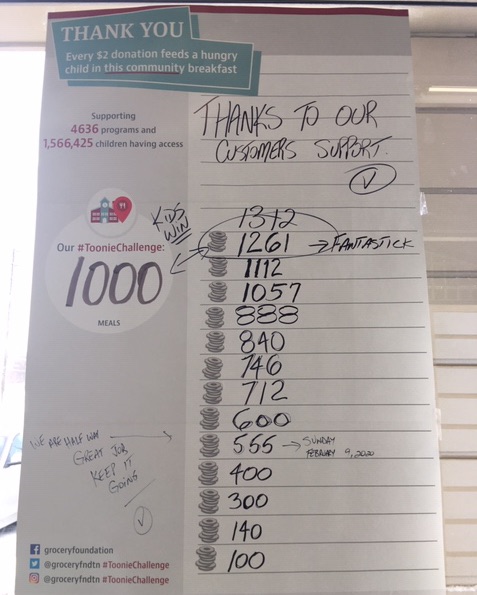 THANK YOU
Every $2 donation feeds a hungry
child in this community breakfast
Supporting
4636 programs and
1,566,425 children having access
THANKS TO OUR
CUSTOMERS SUPPORT.
KIDS
WIN
Our #ToonieChallenge:
1000
MEALS
1312
1261 → FANTASTICK
1112
1057
888
840
746
712
600
555 → SUNDAY
FEBRUARY 9, 2020
400
300
140
100
WE ARE HALF WAY
GREAT JOB
KEEP IT
GOING
groceryfoundation
@groceryfndtn #ToonieChallenge
@groceryfndtn #ToonieChallenge